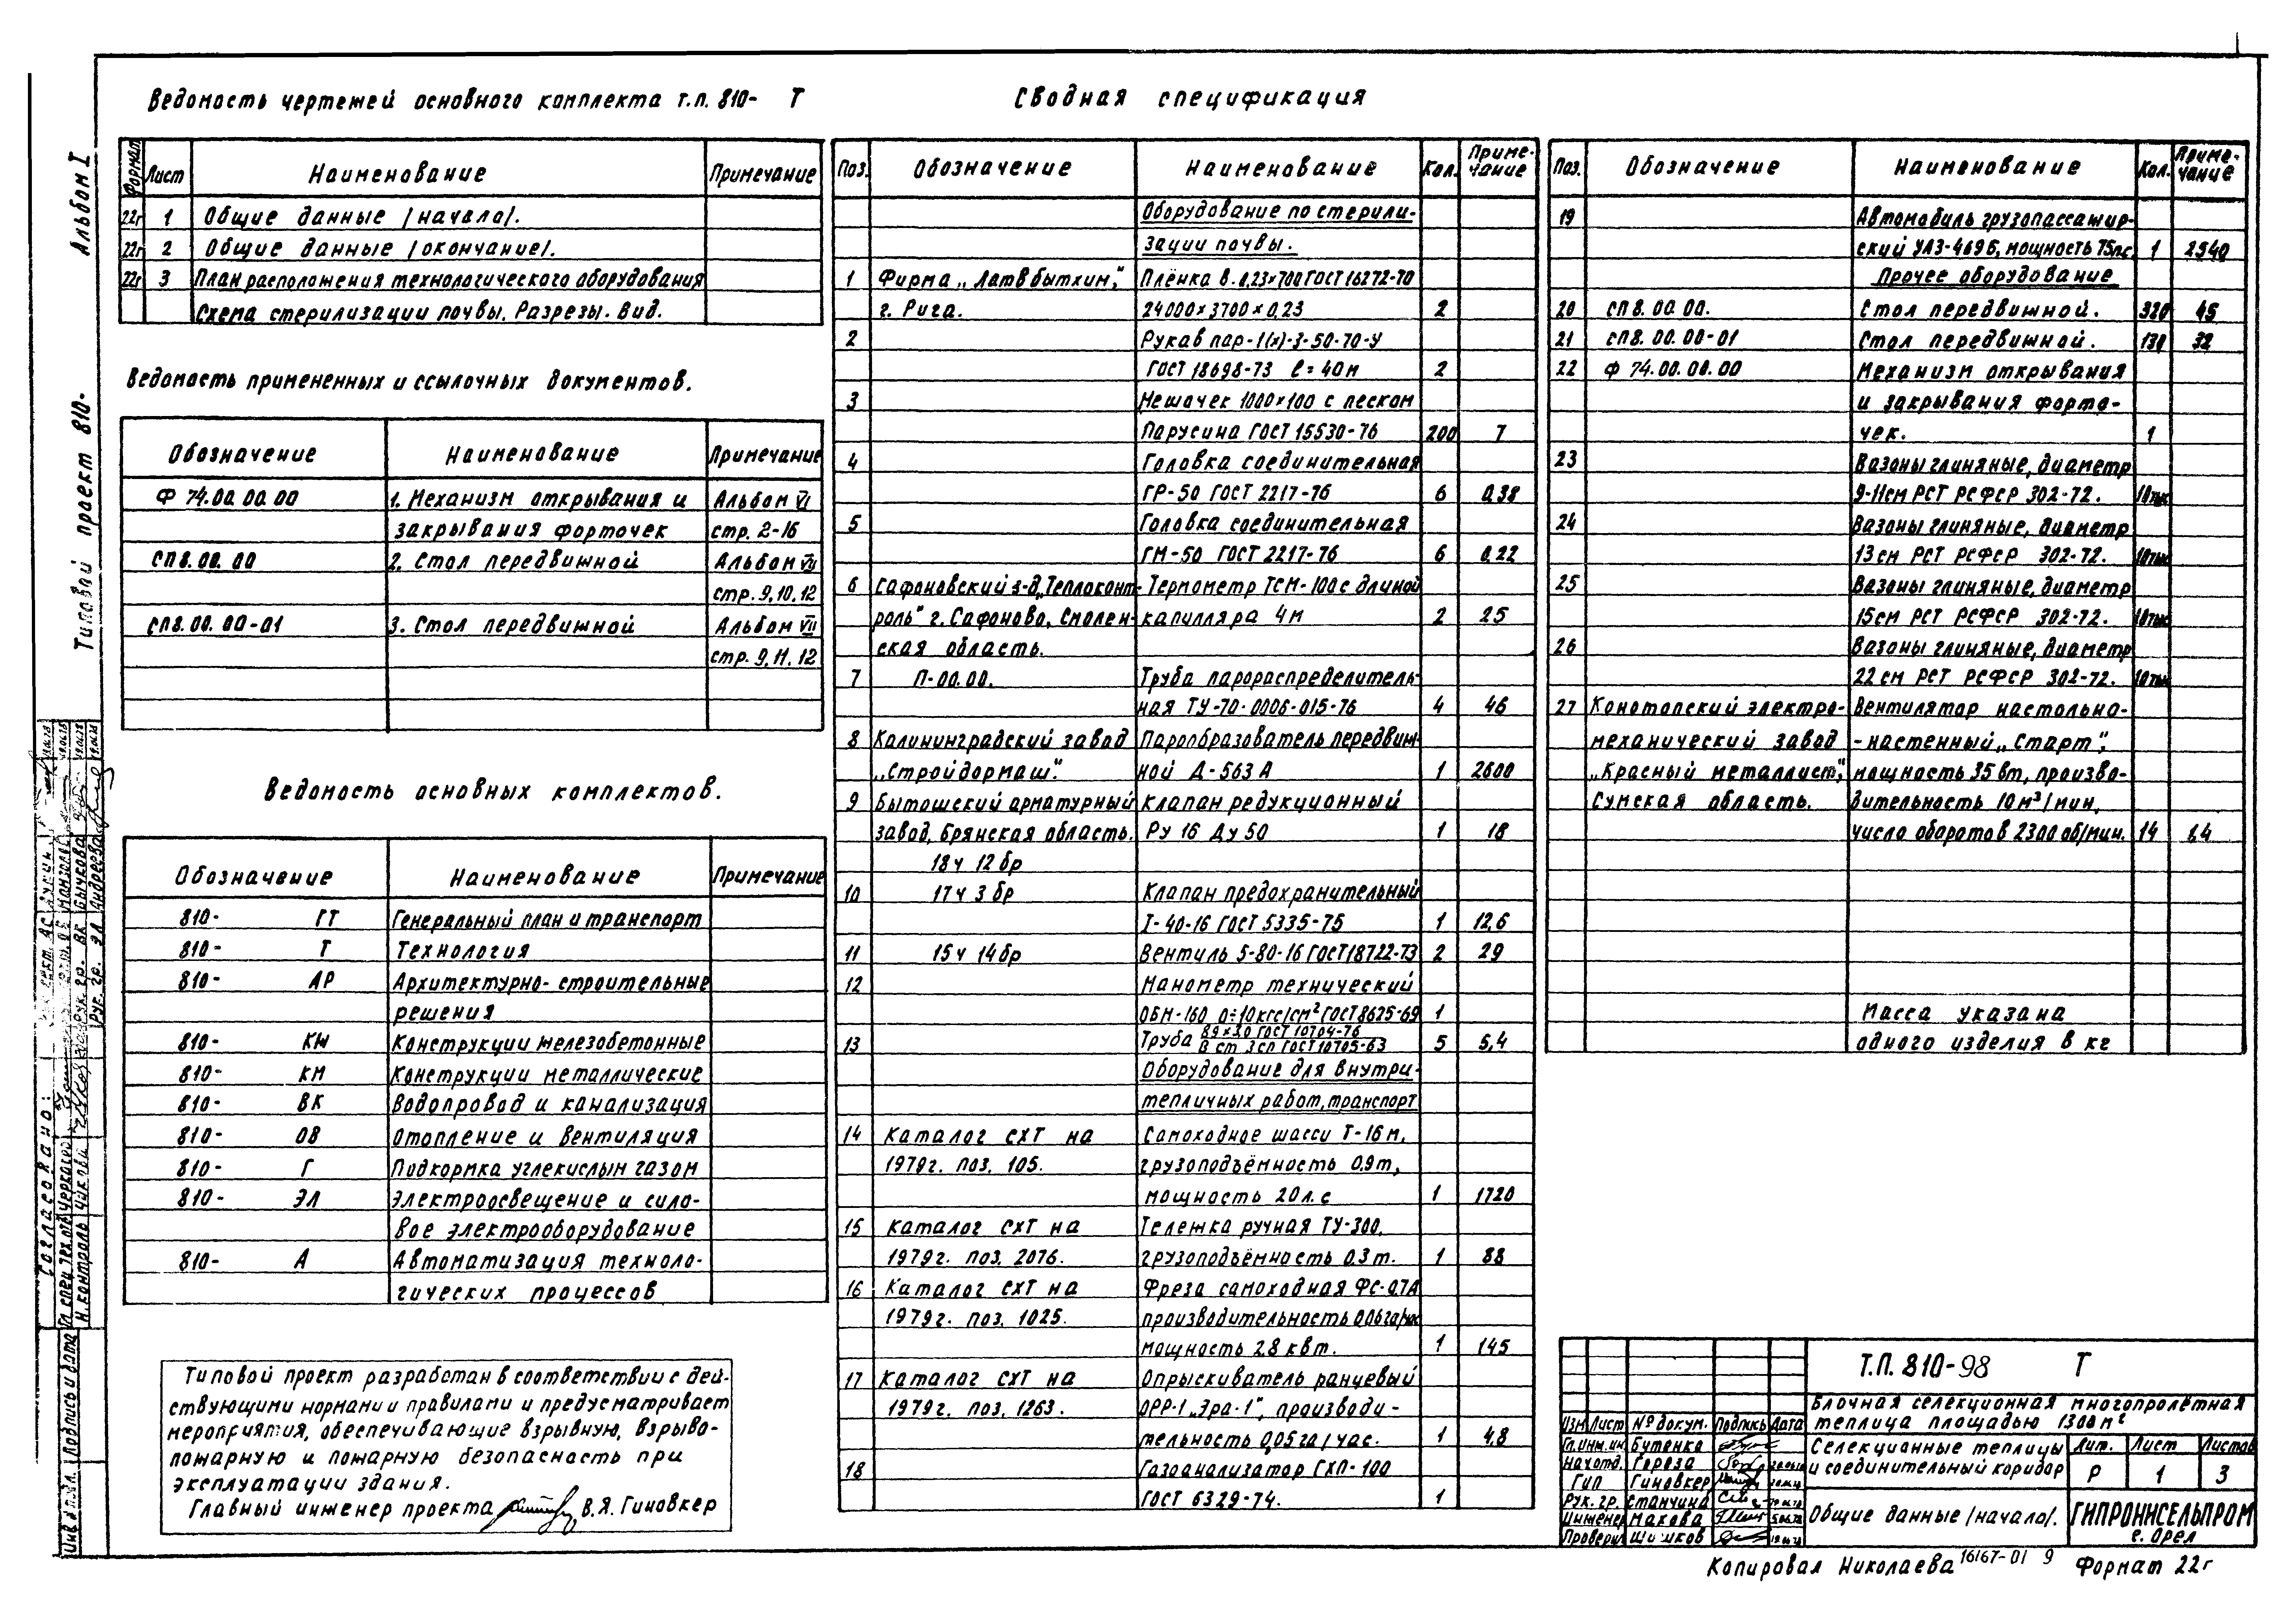 Ведомость чертежей основного комплекта т.п. 810- Т
Формат Лист Наименование Примечание
22г 1 Общие данные /начало/.
22г 2 Общие данные /окончание/.
22г 3 План расположения технологического оборудования
Схема стерилизации почвы. Разрезы. Вид.
Ведомость примененных и ссылочных документов.
Обозначение Наименование Примечание
Ф 74.00.00.00 1. Механизм открывания и Альбом VI
закрывания форточек стр. 2-16
СП8.00.00 2. Стол передвижной Альбом VII
стр. 9,10,12
СП8.00.00-01 3. Стол передвижной Альбом VII
стр. 9,11,12
Ведомость основных комплектов.
Обозначение Наименование Примечание
810- ГТ Генеральный план и транспорт
810- Т Технология
810- АР Архитектурно-строительные
решения
810- КЖ Конструкции железобетонные
810- КМ Конструкции металлические
810- ВК Водопровод и канализация
810- ОВ Отопление и вентиляция
810- Г Подкормка углекислым газом
810- ЭЛ Электроосвещение и сило-
вое электрооборудование
810- А Автоматизация техноло-
гических процессов
Типовой проект разработан в соответствии с дей-
ствующими нормами и правилами и предусматривает
мероприятия, обеспечивающие взрывную, взрыво-
пожарную и пожарную безопасность при
эксплуатации здания.
Главный инженер проекта В.Я. Гиновкер
Сводная спецификация
Поз. Обозначение Наименование Кол. Приме-
чание
Оборудование по стерили-
зации почвы.
1 Фирма „Латвбытхим", Плёнка В. 0,23×700 ГОСТ 16272-70
г. Рига. 24000×3700×0,23 2
2 Рукав пар-1(х)-3-50-70-У
ГОСТ 18698-73 ℓ=40м 2
3 Мешочек 1000×100 с песком
Парусина ГОСТ 15530-76 200 7
4 Головка соединительная
ГР-50 ГОСТ 2217-76 6 0,38
5 Головка соединительная
ГМ-50 ГОСТ 2217-76 6 0,22
6 Сафоновский з-д „Теплоконт- Термометр ТСМ-100 с длиной
роль" г. Сафоново, Смолен- капилляра 4м 2 25
ская область.
7 П-00.00. Труба парораспределитель-
ная ТУ-70-0006-015-76 4 46
8 Калининградский завод Парообразователь передвиж-
„Стройдормаш". ной Д-563А 1 2600
9 Бытошский арматурный Клапан редукционный
завод, Брянская область. Ру 16 Ду 50 1 18
18ч 12бр
10 17ч 3бр Клапан предохранительный
I-40-16 ГОСТ 5335-75 1 12,6
11 15ч 14бр Вентиль 5-80-16 ГОСТ 18722-73 2 29
12 Манометр технический
ОБМ-160 0÷10кгс/см² ГОСТ 8625-69 1
13 Труба 89×3.0 ГОСТ 10704-76
В ст 3сп ГОСТ 10705-63 5 5,4
Оборудование для внутри-
тепличных работ, транспорт
14 Каталог СХТ на Самоходное шасси Т-16м,
1979г. поз. 105. грузоподъёмность 0.9т,
мощность 20л.с 1 1720
15 Каталог СХТ на Тележка ручная ТУ-300,
1979г. поз. 2076. грузоподъёмность 0.3т. 1 88
16 Каталог СХТ на Фреза самоходная ФС-0.7А
1979г. поз. 1025. производительность 0.06га/час
мощность 2.8 квт. 1 145
17 Каталог СХТ на Опрыскиватель ранцевый
1979г. поз. 1263. ОРР-1 „Эра-1", производи-
тельность 0,05га/час. 1 4,8
18 Газоанализатор ГХП-100
ГОСТ 6329-74. 1
Поз. Обозначение Наименование Кол. Приме-
чание
19 Автомобиль грузопассажир-
ский УАЗ-469Б, мощность 75лс. 1 2540
Прочее оборудование
20 СП8.00.00. Стол передвижной. 320 45
21 СП8.00.00-01 Стол передвижной. 130 32
22 Ф 74.00.00.00 Механизм открывания
и закрывания форто-
чек. 1
23 Вазоны глиняные, диаметр
9-11см РСТ РСФСР 302-72. 10тыс
24 Вазоны глиняные, диаметр
13см РСТ РСФСР 302-72. 10тыс
25 Вазоны глиняные, диаметр
15см РСТ РСФСР 302-72. 10тыс
26 Вазоны глиняные, диаметр
22см РСТ РСФСР 302-72. 10тыс
27 Конотопский электро- Вентилятор настольно-
механический завод -настенный „Старт",
„Красный металлист", мощность 35вт, произво-
Сумская область. дительность 10м³/мин,
число оборотов 2300 об/мин. 14 1.4
Масса указана
одного изделия в кг
Т.П. 810-98 Т
Блочная селекционная многопролётная
теплица площадью 1300м²
Изм Лист № докум. Подпись Дата
Гл.инж.ин Бутенко
Нач.отд. Гореза
ГИП Гиновкер
Рук. гр. Станчина
Инженер Махова
Проверил Шишков
Селекционные теплицы
и соединительный коридор
Лит. Лист Листов
Р 1 3
Общие данные /начало/.
ГИПРОНИСЕЛЬПРОМ
г. Орел
Копировал Николаева 16167-01 9 Формат 22г
Альбом I
Типовой проект 810-
Согласовано:
Н.контроль
Рук. гр. ВК Бычкова
Рук. гр. ЭЛ Андреева
Подпись и дата
Инв № подл.